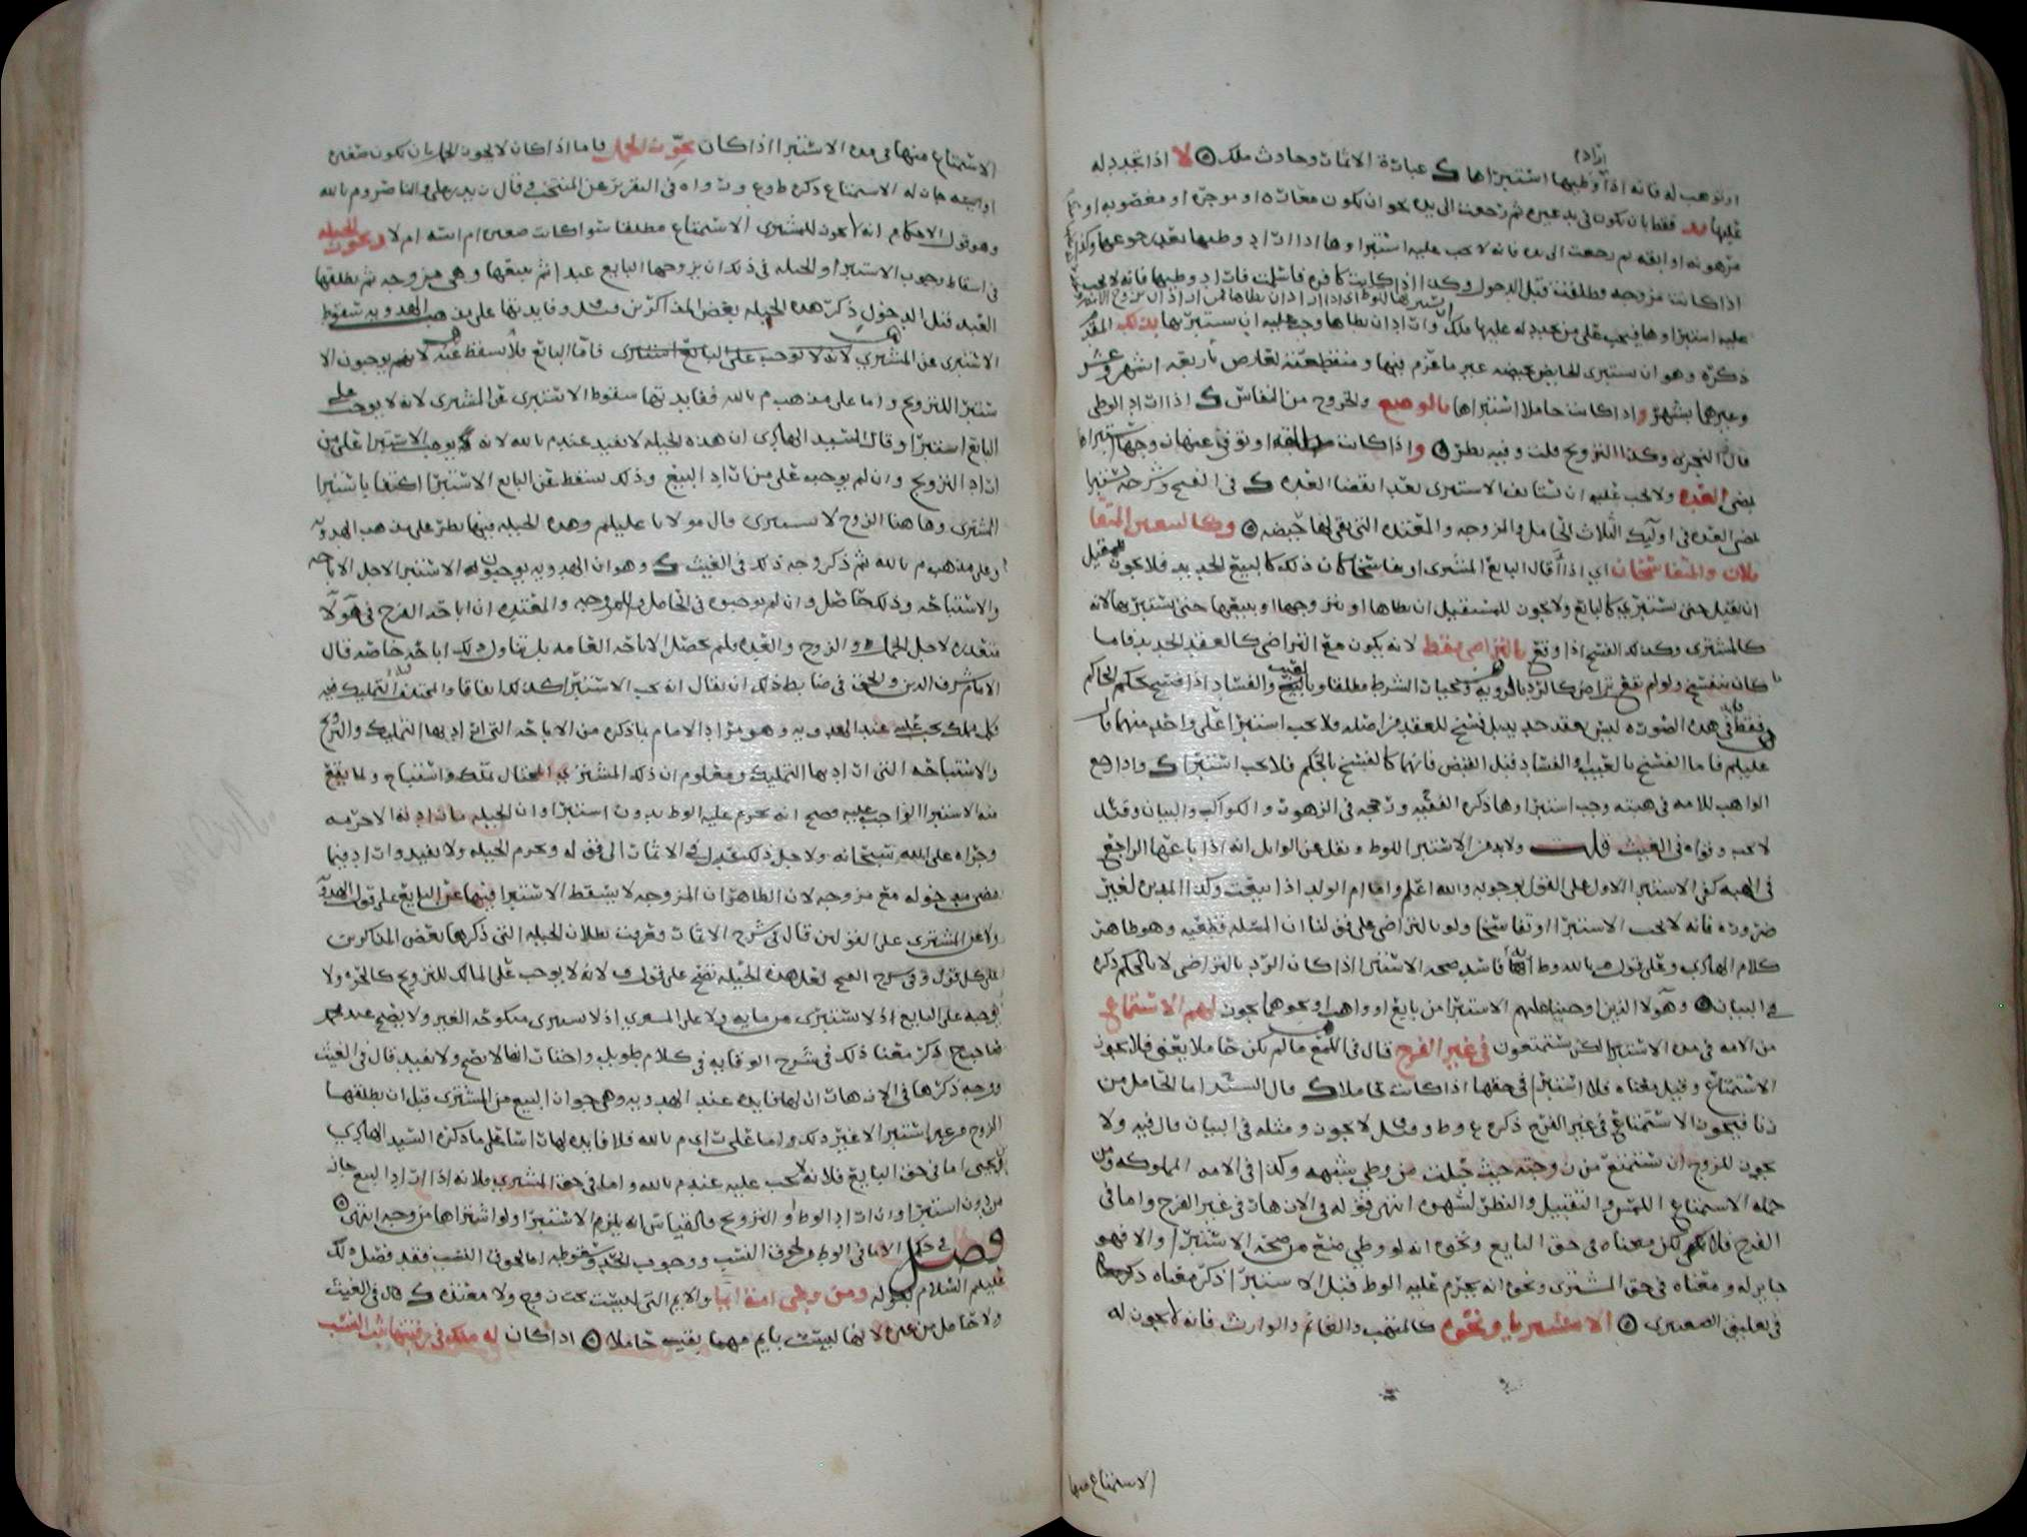 او توهب له فانه اذا اراد وطيها استبراها ك عبارة الاثمار وحادث ملك لا اذا تجدد له
عليها يد فقط بان يكون في يد غيره ثم رجعت الى يده نحو ان تكون معارة او موجرة او مغصوبة او
مرهونة او ابقة ثم رجعت الى يده فانه لا يجب عليه استبراوها اذا اراد وطيها بعد رجوعها وكذا
اذا كانت مزوجة وطلقت قبل الدخول وكذا اذا كانت كافرة فاسلمت فاراد وطيها فانه لا يجب
عليه استبراوها فيجب على من تجدد له عليها ملك واراد ان يطاها وجب عليه ان يستبريها بذلك المقدم
ذكره وهو ان يستبرى الحايض بحيضة غير ما عزم فيها ومنقطعته لعارض باربعة اشهر وعشر
وغيرهما بشهر واذا كانت حاملا استبراها بالوضع والخروج من النفاس ك اذا اراد الوطي
قال النجري وكذا التزويج قلت وفيه نظر واذا كانت مطلقة او توفي عنها زوجها استبراها
بمضي العدة ولا يجب عليه ان يستانف الاستبرى بعد انقضا العدة ك في الفتح وشرحه يستبرا
بمضي العدة في اوليك الثلاث الحامل والمزوجة والمعتدة التي بقي لها حيضة وكالبيعين المتقا
يلان والمتفاسخان اي اذا اقال البايع المشترى او تفاسخا كان ذلك كالبيع الجديد فلا يجوز للمقيل
ان يقيل حتى يستبري كالبايع ولا يجوز للمستقيل ان يطاها او يزوجها او يبيعها حتى يستبريها لانه
كالمشترى وكذلك الفسخ اذا وقع بالتراضي فقط لانه يكون مع التراضي كالعقد الجديد فاما ما
كان بفسخ ولو لم يقع تراض كالرد بالروية وبخيار الشرط مطلقا وبالعيب والفساد اذا فسخ بحكم الحاكم
فقط ففي هذه الصورة ليس بعقد جديد بل فسخ للعقد من اصله فلا يجب استبرا على واحد منهما قال
عليلم فاما الفسخ بالعيب والفساد قبل القبض فانهما كالفسخ بالحكم فلا يجب استبرا ك واذا رجع
الواهب للامة في هبته وجب استبراوها ذكره الفقيه ورجحه في الزهور والكواكب والبيان وقيل
لا يجب وقواه في الغيث قلت ولا بد من الاستبرا للوط ونقل عن الوابل انه اذا باعها الراجع
في الهبة كفى الاستبرا الاول على القول بوجوبه والله اعلم واما ام الولد اذا بيعت وكذا المدبر لغير
ضرورة فانه لا يجب الاستبرا او تفاسخا ولو بالتراضي على قولنا ان المسئلة قطعية وهو ظاهر
كلام الهادي وعلى قول م بالله وط انها فاسد صحة الاستبرا اذا كان الرد بالتراضي لا بالحكم ذكره
في البيان وهولا الذين اوجبنا عليهم الاستبرا من بايع او واهب او نحوهما يجوز لهم الاستمتاع
من الامة في مدة الاستبرا لكن يستمتعون في غير الفرج قال في اللمع ما لم يكن حاملا يعني فلا يجوز
الاستمتاع وقيل معناه فلا استبرا في حقها اذا كانت حاملا ك قال السيد اما الحامل من
زنا فيجوز الاستمتاع في غير الفرج ذكره ع وط وقيل لا يجوز ومثله في البيان قال فيه ولا
يجوز للزوج ان يستمتع من زوجته حيث حبلت من وطي بشبهة وكذا في الامة المملوكة ومن
جملة الاستمتاع اللمس والتقبيل والنظر لشهوة انتهى قوله في الازهار في غير الفرج واما في
الفرج فلا يجوز لكن معناه في حق البايع ونحوه انه لو وطي منع من صحة الاستبرا والا فهو
جايز له ومعناه في حق المشترى ونحوه انه يحرم عليه الوط قبل الاستبرا ذكر معناه
في تعليق الصعيتري الا مشتريا ونحوه كالمتهب والغانم والوارث فانه لا يجوز له
الاستمتاع منها
الاستمتاع منها في مدة الاستبرا اذا كان يجوز الحمل فاما اذا كان لا يجوز الحمل بان تكون صغيرة
او ايسة جاز له الاستمتاع ذكره ط وع ورواه في التقرير عن المنتخب وقال زيد بن علي والناصر وم بالله
وهو قول الاحكام انه لا يجوز للمشترى الاستمتاع مطلقا سوا كانت صغيرة ام ايسة ام لا وتجوز الحيلة
في اسقاط وجوب الاستبرا والحيلة في ذلك ان يزوجها البايع عبدا ثم يبيعها وهي مزوجة ثم يطلقها
العبد قبل الدخول ذكر هذه الحيلة بعض المذاكرين قيل وفايدتها على مذهب الهدوية سقوط
الاستبرى عن المشتري لانه لا يوجب على البايع استبرى فاما البايع فلا يسقط عنه لانهم يوجبون الا
ستبرا للتزويج واما على مذهب م بالله ففايدتها سقوط الاستبرى عن المشترى لانه لا يوجب على
البايع استبرا وقال السيد الهادي ان هذه الحيلة لا تفيد عند م بالله لانه يوجب الاستبرا على من
اراد التزويج وان لم يوجبه على من اراد البيع وذلك يسقط عن البايع الاستبرا اكتفا باستبرا
المشترى وها هنا الزوج لا يستبرى قال مولانا عليلم وهذه الحيلة فيها نظر على مذهب الهدوية
وعلى مذهب م بالله ثم ذكر وجه ذلك في الغيث ك وهو ان الهدوية يوجبون الاستبرا لاجل الاباحة
والاستباحة وذلك حاصل وان لم يوجبوه في الحامل والمزوجة والمعتدة ان اباحة الفرج في هولا
متعذرة لاجل الحمل والزوج والعدة فلم تحصل الاباحة العامة بل تناول ذلك اباحة خاصة قال
الامام شرف الدين والحق في ضابط ذلك ان يقال انه يجب الاستبرا كذلك اتفاقا
فكل ملك يجب عليه عند الهدوية وهو مراد الامام بما ذكره من الاباحة التي اراد بها التمليك والتزويج
والاستباحة التي اراد بها التملك ومعلوم ان ذلك المشتري المحتال تملك واستباح ولما يقع
منه الاستبرا الواجب عليه فصح انه يحرم عليه الوط بدون استبرا وان الحيلة ما زادته الا حرمة
وجراة على الله سبحانه ولاجل ذلك عدل في الاثمار الى قوله وتحرم الحيلة ولا تفيد وزاد فيما
مضى بعد دخوله مع مزوجة لان الظاهر ان المزوجة لا يسقط الاستبرا فيها عن البايع على قول الهدوية
ولا عن المشترى على القولين قال في شرح الاثمار وعرفت بطلان الحيلة التي ذكرها بعض المذاكرين
على كل قول وفي شرح الفتح لعل هذه الحيلة تصح على قول ف لانه لا يوجب على المالك للتزويج كالحرة ولا
يوجبه على البايع اذ لا يستبرى من مايه ولا على المشتري اذ لا يستبرى منكوحة الغير ولا يصح عند محمد
صاحب ح ذكر معنا ذلك في شرح الوقاية في كلام طويل واختار انها لا تصح ولا تفيد قال في الغيث
ووجه ذكرها في الازهار ان لها فايدة عند الهدوية وهي جواز البيع من المشترى قبل ان يطلقها
الزوج من غير استبرا لا غير ذلك واما على راي م بالله فلا فايدة لها راسا على ما ذكره السيد الهادي
بن يحيى اما في حق البايع فلانه لا يجب عليه عند م بالله واما في حق المشترى فلانه اذا اراد البيع جاز
من دون استبرا وان اراد الوط او التزويج فالقياس انه يلزم الاستبرا ولو اشتراها مزوجة انتهى
فصل في حكم الاما في الوط ولحوق النسب ووجوب الحد وسقوطه اما لحوق النسب فقد فصل ذلك
عليلم السلام بقوله ومن وطى امة ايما والايم التي ليست تحت زوج ولا معتدة ك قال في الغيث
ولا حامل من غيره لانها ليست بايم مهما بقيت حاملا اذا كان له ملك في رقبتها ثبت النسب